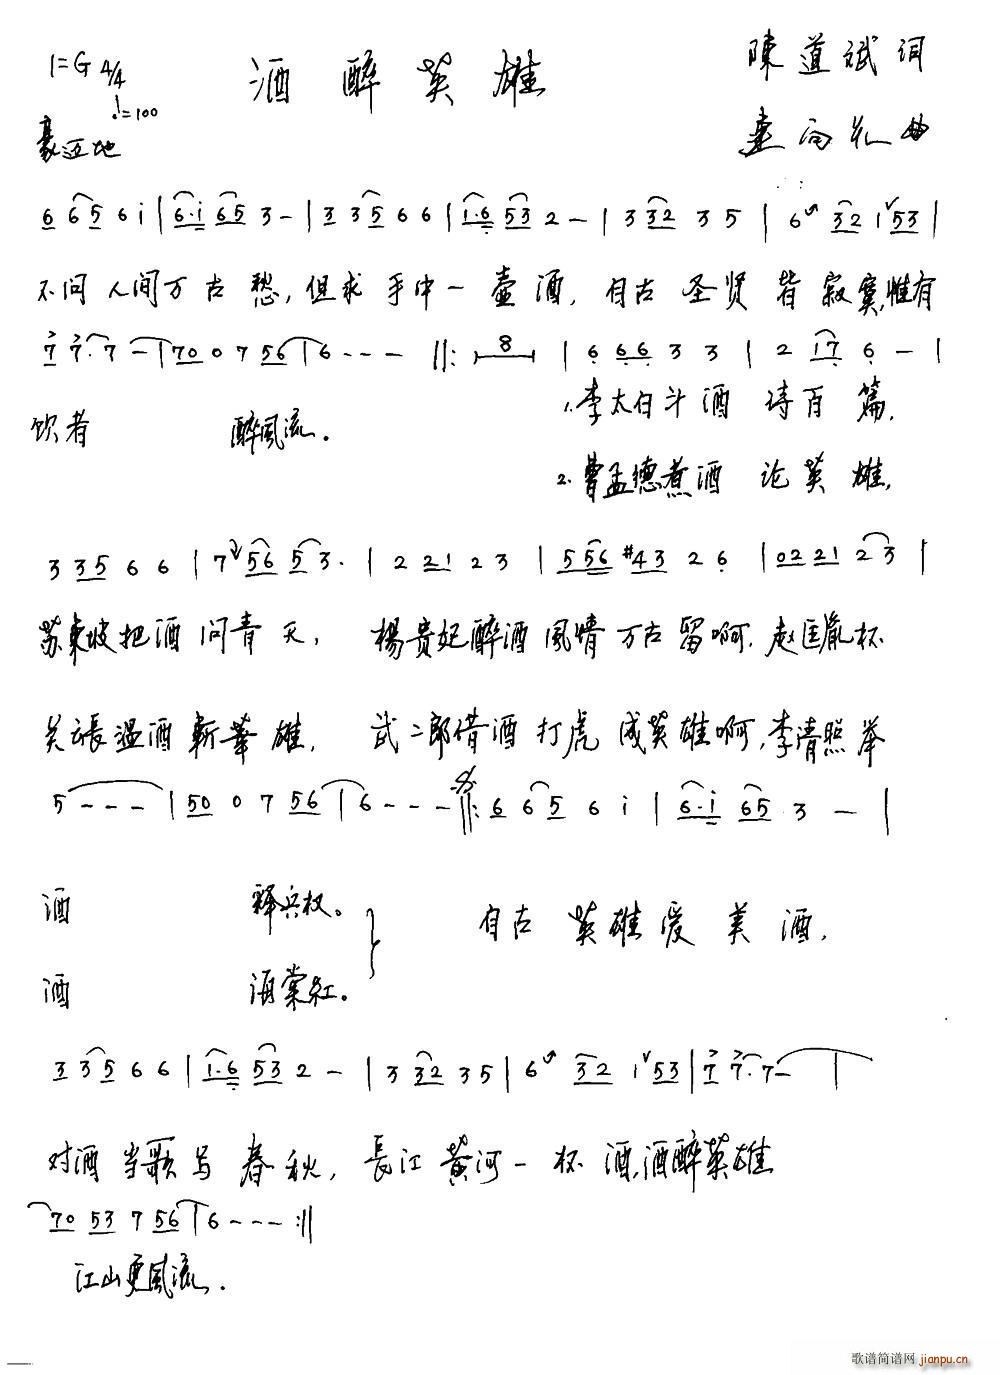 1=G 4/4 酒醉英雄 陳道斌词
♩=100
豪迈地 曲
6 6 5 6 i | 6·i 6 5 3 - | 3 3 5 6 6 | 1·6 5 3 2 - | 3 3 2 3 5 | 6 3 2 1 5 3 |
不问人间万古愁,但求手中一壶酒,自古圣贤皆寂寞,惟有
7 7·7 - | 7 0 0 7 5 6 | 6 - - - ||: 8 | 6 6 6 3 3 | 2 1 7 6 - |
饮者 醉風流. 1.李太白斗酒诗百篇,
2.曹孟德煮酒论英雄,
3 3 5 6 6 | 7 5 6 5 3· | 2 2 1 2 3 | 5 5 6 #4 3 2 6 | 0 2 2 1 2 3 |
苏東坡把酒问青天, 楊贵妃醉酒風情万古留啊,赵匡胤杯
关張温酒斬華雄, 武二郎借酒打虎成英雄啊,李清照举
5 - - - | 5 0 0 7 5 6 | 6 - - - ||: 6 6 5 6 i | 6·i 6 5 3 - |
酒 释兵权。 自古英雄爱美酒,
酒 海棠紅。
3 3 5 6 6 | 1·6 5 3 2 - | 3 3 2 3 5 | 6 3 2 1 5 3 | 7 7·7 - |
对酒当歌写春秋,長江黄河一杯酒,酒醉英雄
7 0 5 3 7 5 6 | 6 - - - :||
江山更風流.
歌谱简谱网
jianpu.cn